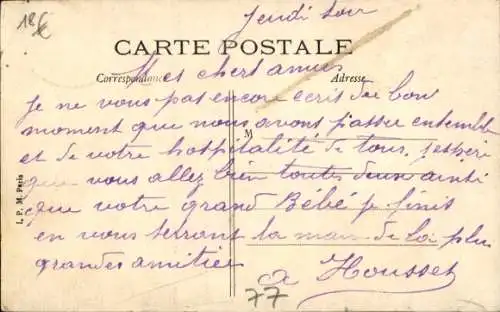 18 €
Jeudi soir
CARTE POSTALE
Correspondance
Adresse
Mes chert amies
Je ne vous pas encore ecris du bon
moment que nous avons passer ensemble
M
et de votre hospitalité de tous jesperé
que vous allez bien toutes deux ainsi
que votre grand Bébé je finis
en vous serrant la main de la plus
grandes amitiés
a Housset
77
I. P. M. Paris